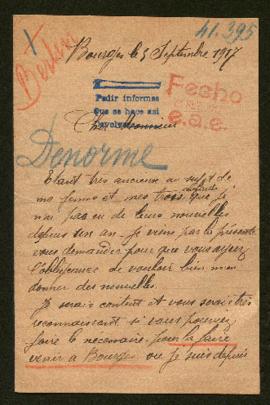 41.395
1
Bertin
Bourges le 3 Septembre 1917
Pedir informes
Que se hace así
Fecho
e.a.e.
Cher Monsieur
Denorme
Etant très ancieuse au sujet de
ma femme et mes trois enfants que je
n'ai pas eu de leurs nouvelles
depuis un an. Je viens par la présente
vous demander pour que vous ayez
l'obligeance de vouloir bien men
donner des nouvelles.
Je serais content et vous serais très
reconnaissant si vous pouvez
faire le nécessaire pour la faire
venir à Bourges ou je suis depuis